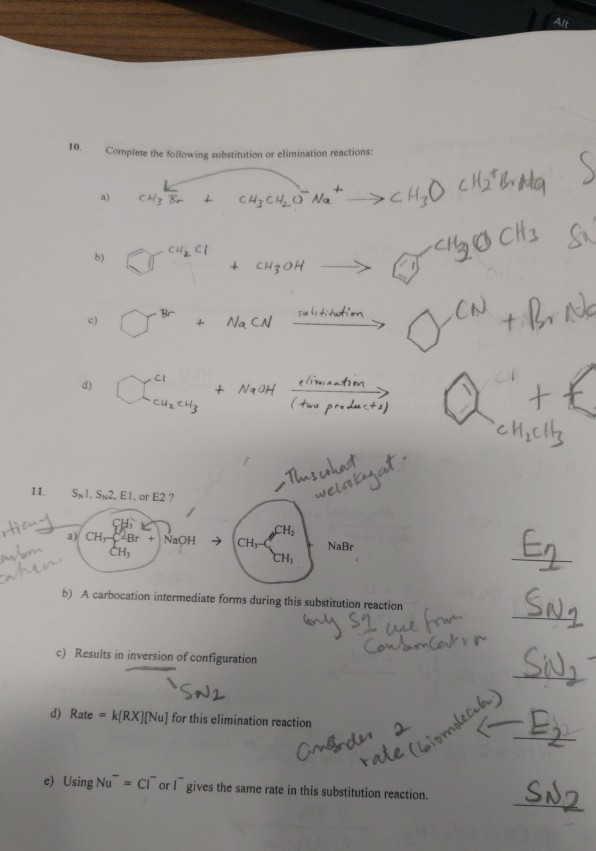 Alt
10. Complete the following substitution or elimination reactions:
a) CH3 Br + CH3CH2O⁻ Na⁺ → CH3O CH2⁺ Br Na S
b) CH2 Cl + CH3OH → CH2O CH3 SN
c) Br + NaCN substitution → CN + Br Na
d) Cl CH2 CH3 + NaOH elimination (two products) → Cl CH2CH3 +
11. SN1, SN2, E1, or E2 ?
This what
a) CH3 CH3-C-Br CH3 + NaOH → CH3-C CH2 CH3 NaBr
b) A carbocation intermediate forms during this substitution reaction SN1
only S1
c) Results in inversion of configuration SN2
SN2
d) Rate = k[RX][Nu] for this elimination reaction E2
2
rate (biomolecular)
e) Using Nu⁻ = Cl⁻ or I⁻ gives the same rate in this substitution reaction. SN2